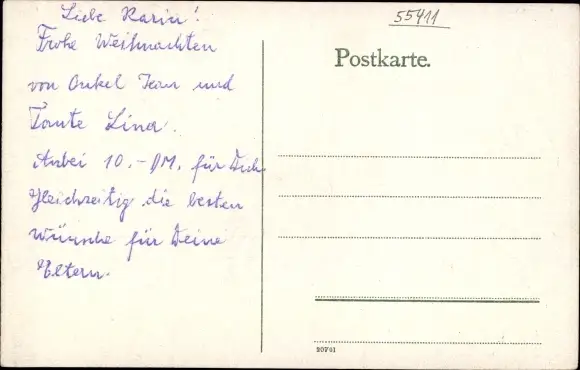 Liebe Karin!
Frohe Weihnachten
von Onkel Jean und
Tante Lina.
Anbei 10.- DM. für Dich
Gleichzeitig die besten
Wünsche für Deine
Eltern.
55411
Postkarte.
20761